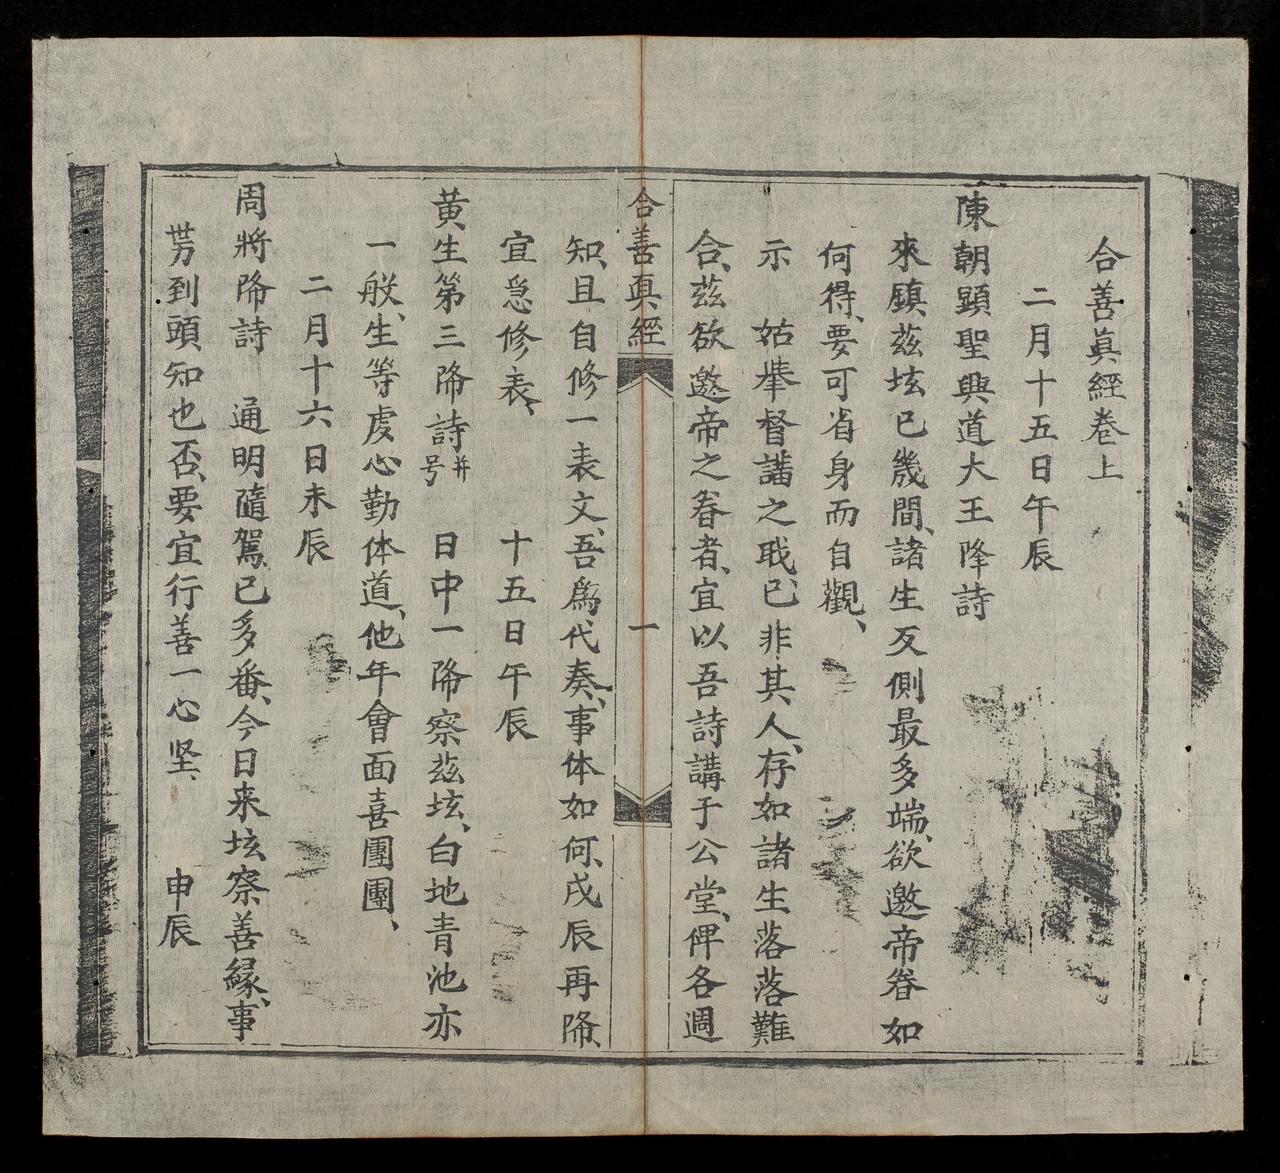 合善真經卷上
二月十五日午辰
陳朝顕聖興道大王降詩
來鎮兹坛已幾間、諸生反側最多端、欲邀帝眷如
何得、要可省身而自觀、
示　姑举督講之戝、已非其人、存如諸生落落難
合、兹欲邀帝之眷者、宜以吾詩講于公堂、俾各週
合善真經
一
知、且自修一表文、吾爲代奏、事体如何、戌辰再降
宜急修表、　十五日午辰
黄生第三降詩并号　日中一降察兹坛、白地青池亦
一般、生等虔心勤体道、他年會面喜團團、
二月十六日未辰
周將降詩　通明隨駕已多番、今日来坛察善緣、事
势到頭知也否、要宜行善一心坚、　申辰